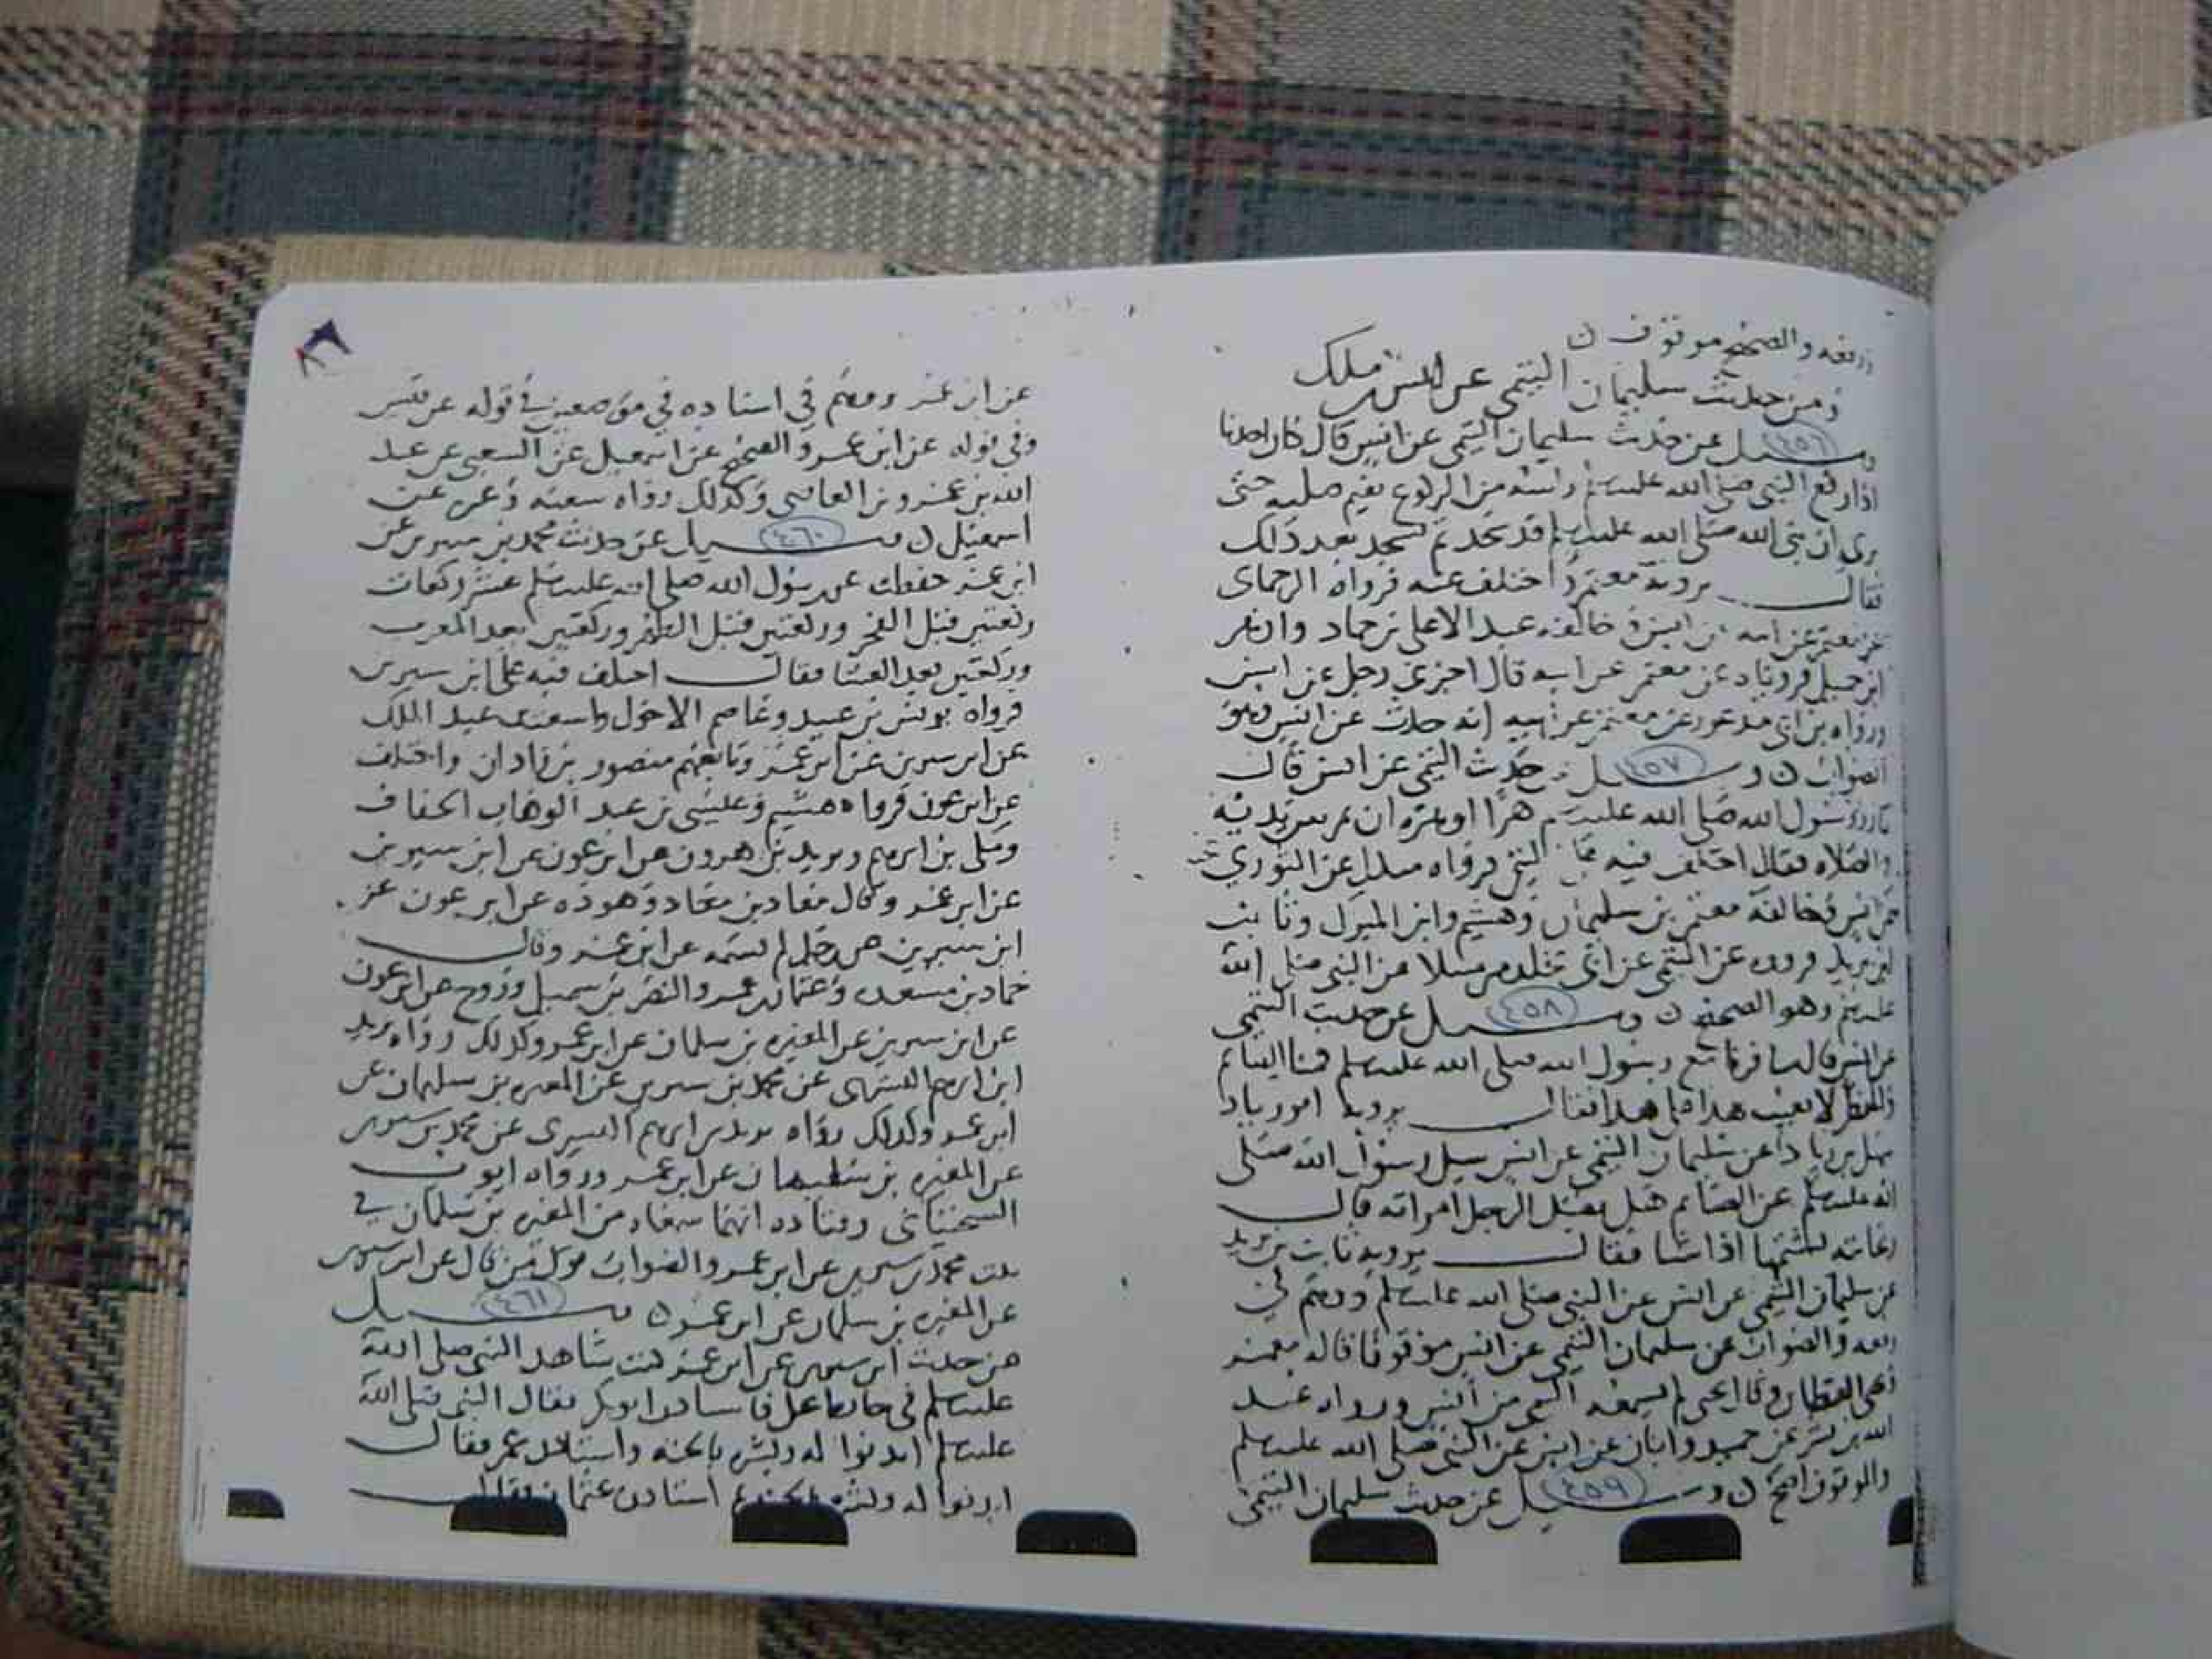 ورفعه والصحيح موقوف ن
ومن حديث سليمان التيمي عن انس بن ملك
٤٥٦
وسيل عن حديث سليمان التيمي عن انس قال كان احدنا
اذا رفع النبي صلى الله عليه وسلم راسه من الركوع يقيم صلبه حتى
يرى ان نبي الله صلى الله عليه وسلم قد سجد ثم يسجد بعد ذلك
فقال يرويه معتمر واختلف عنه فرواه
عن معتمر عن ابيه عن انس وخالفه عبد الاعلى بن حماد
ابن حنبل فروياه عن معتمر عن ابيه قال اخبرني رجل عن انس
ورواه عن معتمر عن ابيه انه حدث عن انس وهو
الصواب ن وسيل عن حديث التيمي عن انس قال
٤٥٧
رسول الله صلى الله عليه وسلم هرا او هره ان يمر بين يديه
في الصلاه فقال اختلف فيه على التيمي فرواه مندل عن الثوري
عن انس وخالفه معتمر بن سليمان وهشيم وابن المبرك وثابت
ابن يزيد فرووه عن التيمي عن ابي مجلز مرسلا عن النبي صلى الله
عليه وسلم وهو الصحيح ن وسيل عن حديث التيمي
٤٥٨
عن انس قال سافرنا مع رسول الله صلى الله عليه وسلم فمنا الصايم
والمفطر لا يعيب هذا على هذا فقال يرويه ابو زياد
سهل بن زياد عن سليمان التيمي عن انس سيل رسول الله صلى
الله عليه وسلم عن الصايم هل يقبل الرجل امراته قال
ريحانته يشمها اذا شا فقال يرويه ثابت بن يزيد
عن سليمان التيمي عن انس عن النبي صلى الله عليه وسلم ووهم في
رفعه والصواب عن سليمان التيمي عن انس موقوفا قاله معتمر
ويحيى القطان وقال يحيى لم يسمعه التيمي من انس ورواه عبد
الله بن بشر عن حميد وابان عن انس عن النبي صلى الله عليه وسلم
والموقوف اصح ن وسيل عن حديث سليمان التيمي
٤٥٩
٨٦
عن ابن عمر ووهم في اسناده في موضعين في قوله عن قيس
وفي قوله عن ابن عمر والصحيح عن اسمعيل عن الشعبي عن عبد
الله بن عمرو بن العاصي وكذلك رواه شعبه وغيره عن
اسمعيل ن وسيل عن حديث محمد بن سيرين عن
٤٦٠
ابن عمر حفظت عن رسول الله صلى الله عليه وسلم عشر ركعات
ركعتين قبل الفجر وركعتين قبل الظهر وركعتين بعد المغرب
وركعتين بعد العشا فقال اختلف فيه على ابن سيرين
فرواه يونس بن عبيد وعاصم الاحول واشعث بن عبد الملك
عن ابن سيرين عن ابن عمر وتابعهم منصور بن زادان واختلف
عن ابن عون فرواه هشيم وعيسى بن عبد الوهاب الخفاف
ومكي بن ابرهيم ويزيد بن هرون عن ابن عون عن ابن سيرين
عن ابن عمر وقال معاذ بن معاذ وهوذه عن ابن عون عن
ابن سيرين عن رجل لم يسمه عن ابن عمر وقال
حماد بن مسعده وعثمان بن عمر والنضر بن شميل وروح عن ابن عون
عن ابن سيرين عن المغيره بن سلمان عن ابن عمر وكذلك رواه يزيد
ابن ابرهيم التستري عن محمد بن سيرين عن المغيره بن سليمان عن
ابن عمر وكذلك رواه يزيد بن ابرهيم التستري عن محمد بن سيرين
عن المغيره بن سليمان عن ابن عمر ورواه ايوب
السختياني وقتاده انهما سمعاه من المغيره بن سلمان في
بيت محمد بن سيرين عن ابن عمر والصواب قول من قال عن ابن سيرين
عن المغيره بن سلمان عن ابن عمر ن وسيل
٤٦١
عن حديث ابن سيرين عن ابن عمر كنت شاهد النبي صلى الله
عليه وسلم في حايط نخل فاستاذن ابو بكر فقال النبي صلى الله
عليه وسلم ايذنوا له وبشروه بالجنه واستاذن عمر فقال
ايذنوا له وبشروه بالجنه ثم استاذن عثمان فقال